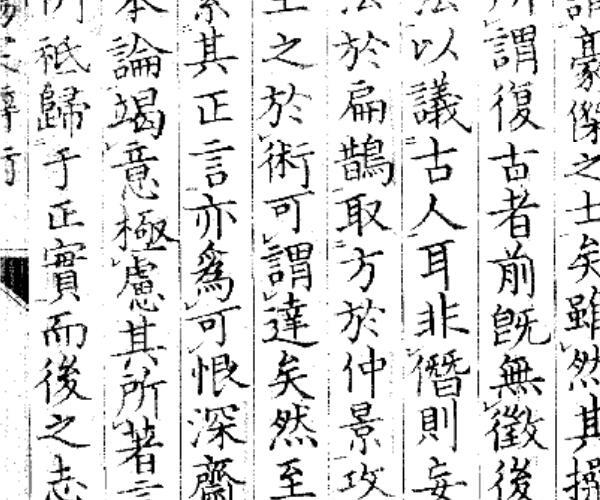 謂豪傑之士矣雖然其操
所謂復古者前旣無徵後
法以議古人耳非僭則妄
法於扁鵲取方於仲景攻
之於術可謂達矣然至
其正言亦爲可恨深齋
本論竭意極慮其所著言
所祗歸于正實而後之志